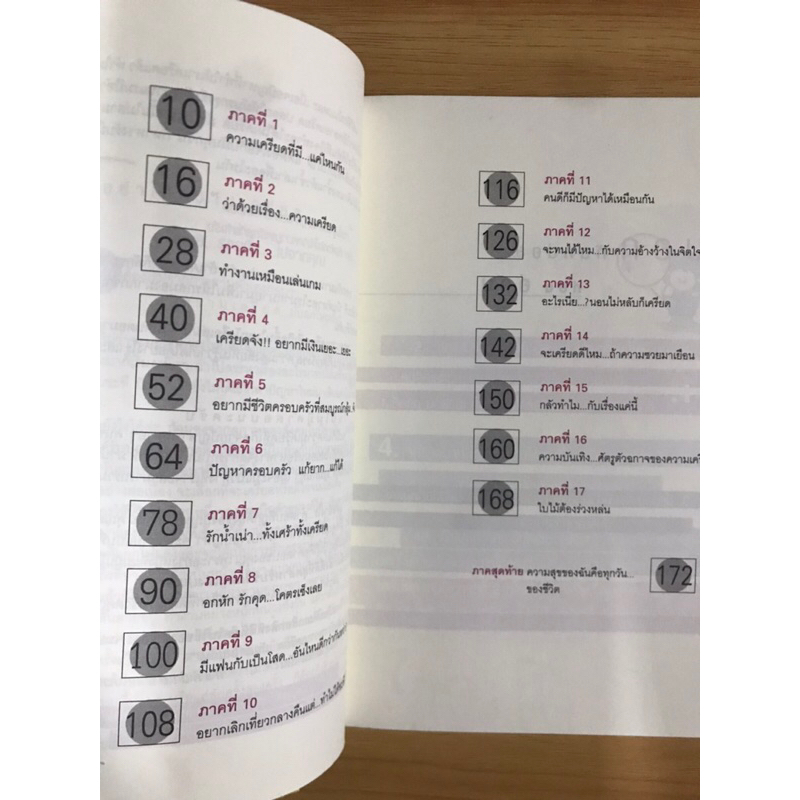 10 ภาคที่ 1
ความเครียดที่มี...แค่ไหนกัน
16 ภาคที่ 2
ว่าด้วยเรื่อง...ความเครียด
28 ภาคที่ 3
ทำงานเหมือนเล่นเกม
40 ภาคที่ 4
เครียดจัง!! อยากมีเงินเยอะ...เยอะ
52 ภาคที่ 5
อยากมีชีวิตครอบครัวที่สมบูรณ์
64 ภาคที่ 6
ปัญหาครอบครัว แก้ยาก...แก้ได้
78 ภาคที่ 7
รักน้ำเน่า...ทั้งเศร้าทั้งเครียด
90 ภาคที่ 8
อกหัก รักคุด...โคตรเซ็งเลย
100 ภาคที่ 9
มีแฟนกับเป็นโสด...อันไหนดีกว่ากัน
108 ภาคที่ 10
อยากเลิกเที่ยวกลางคืนแต่...ทำไม
116 ภาคที่ 11
คนดีก็มีปัญหาได้เหมือนกัน
126 ภาคที่ 12
จะทนได้ไหม...กับความอ้างว้างในจิตใจ
132 ภาคที่ 13
อะไรเนี่ย...?นอนไม่หลับก็เครียด
142 ภาคที่ 14
จะเครียดดีไหม...ถ้าความซวยมาเยือน
150 ภาคที่ 15
กลัวทำไม...กับเรื่องแค่นี้
160 ภาคที่ 16
ความบันเทิง...ศัตรูตัวฉกาจของความ
168 ภาคที่ 17
ใบไม้ต้องร่วงหล่น
ภาคสุดท้าย ความสุขของฉันคือทุกวัน... 172
ของชีวิต